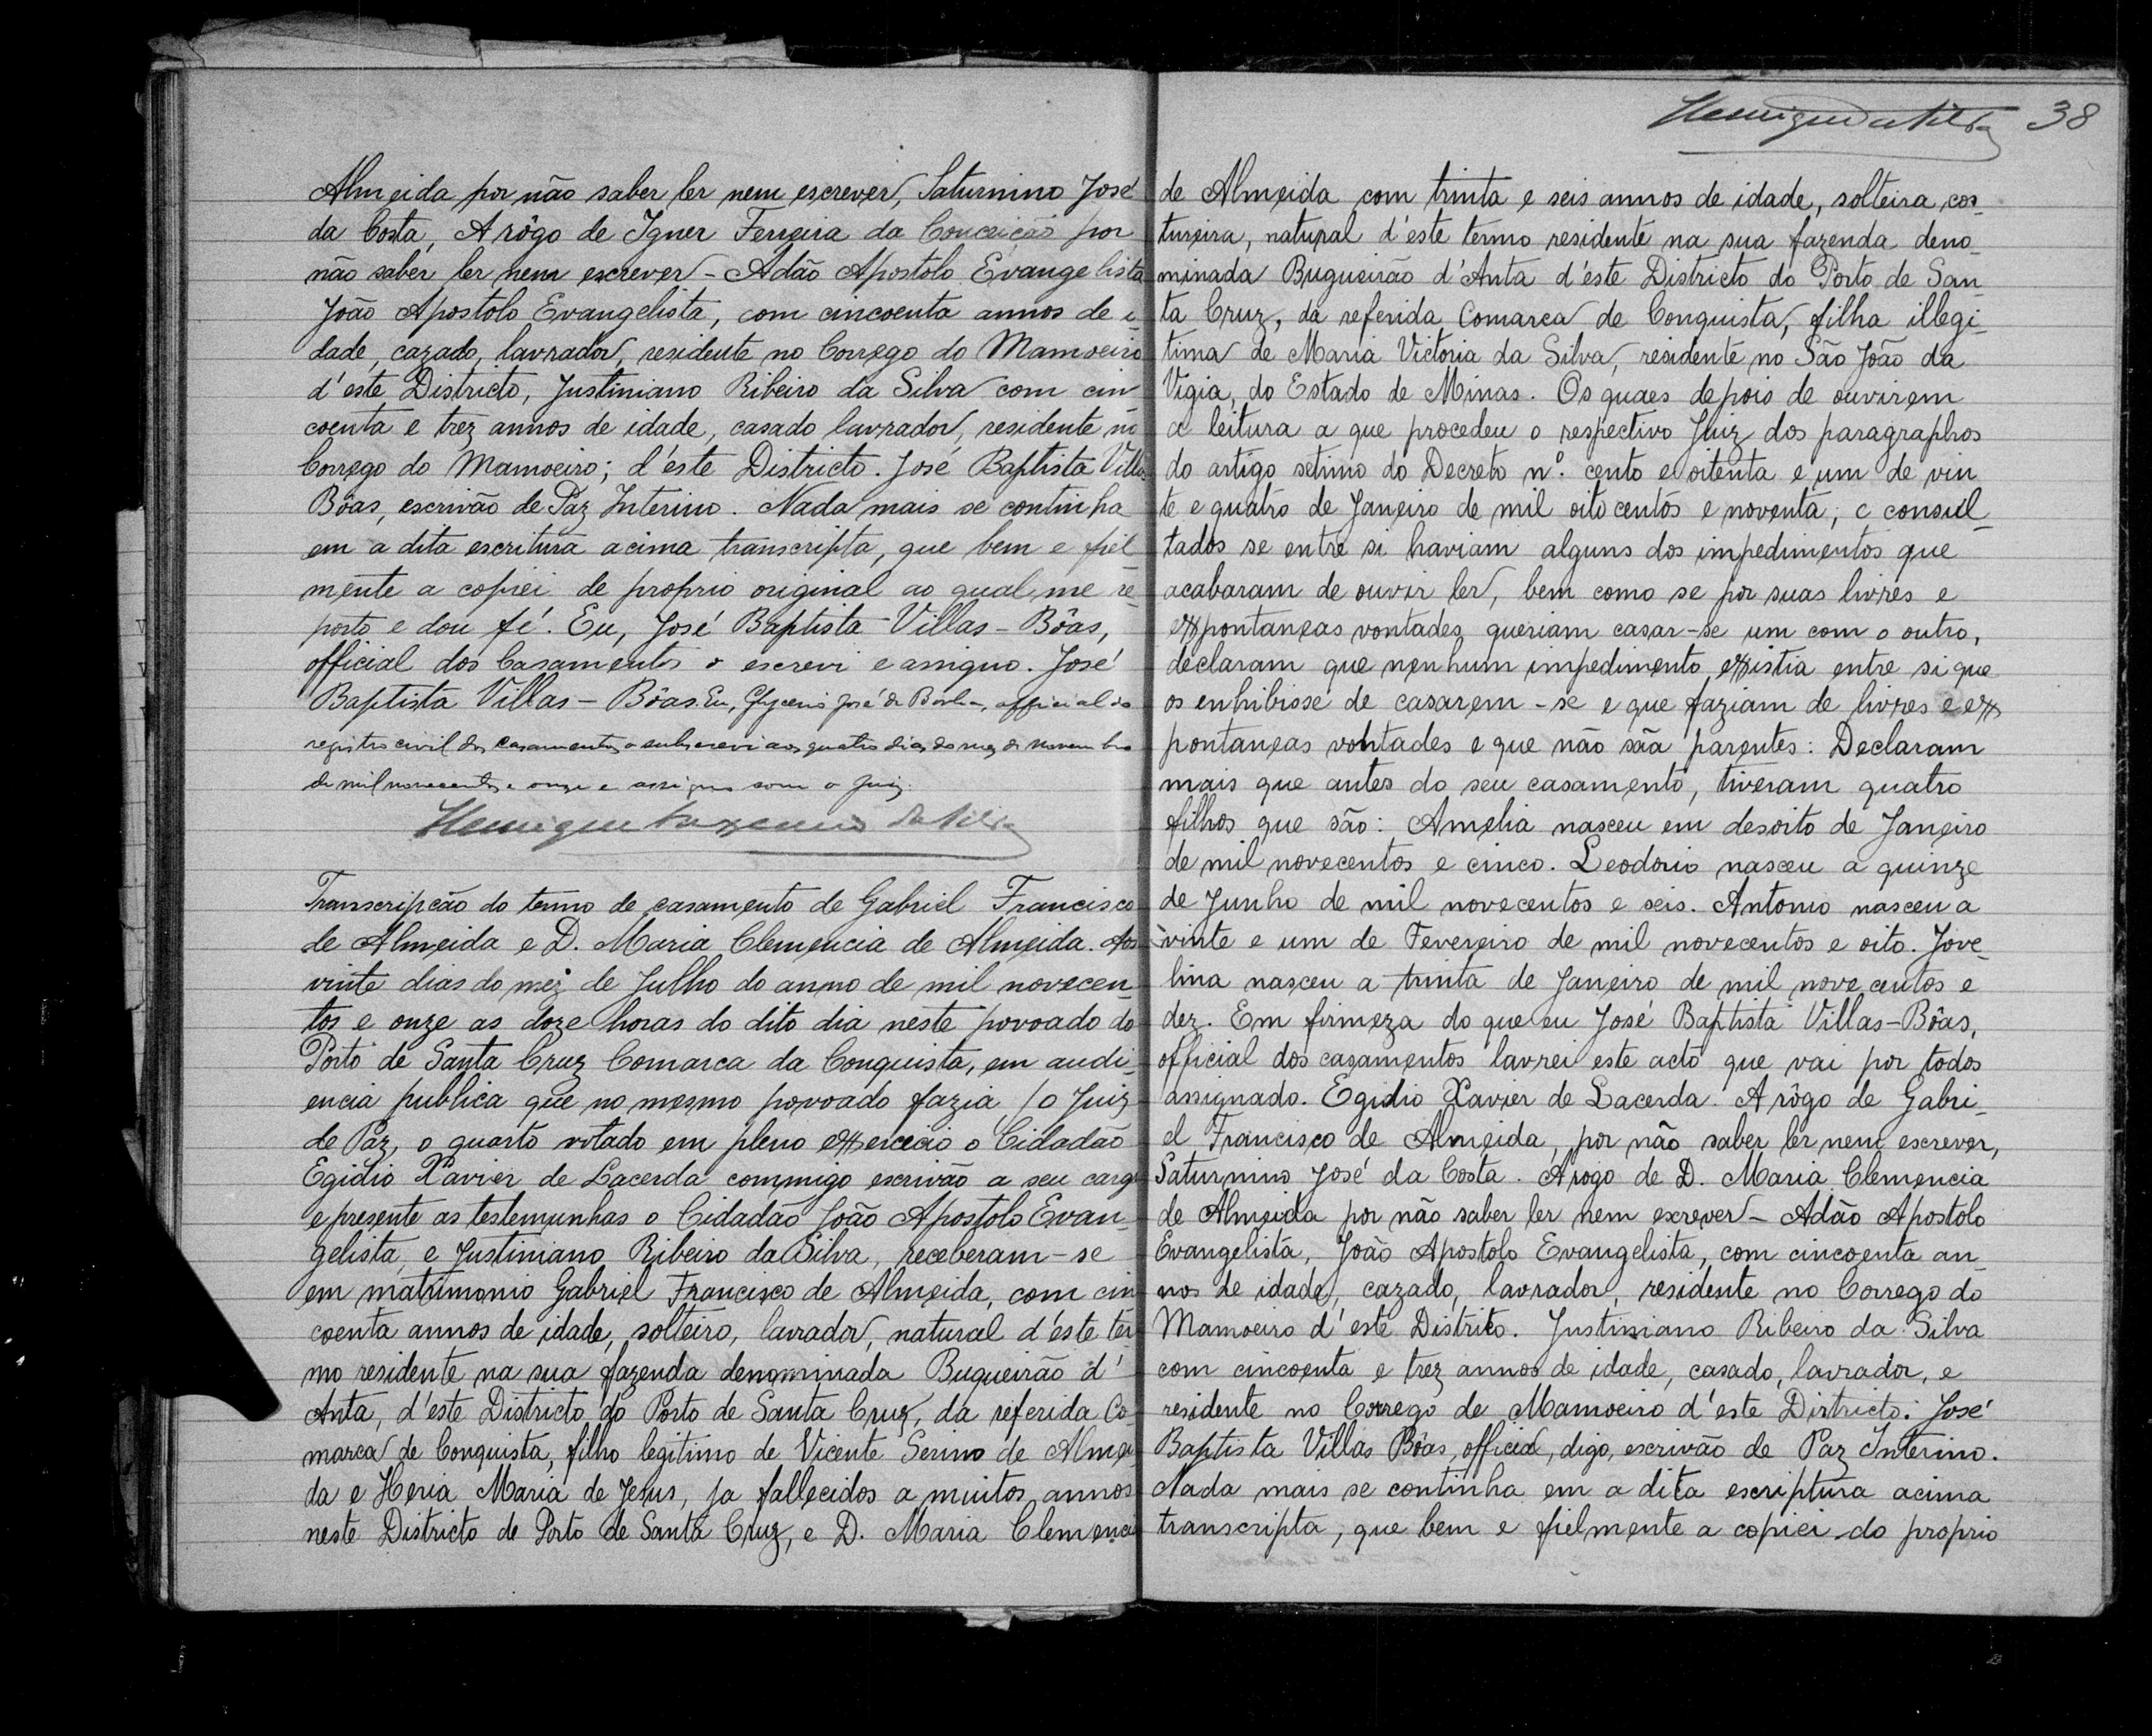 Almeida por não saber ler nem escrever, Saturnino José
da Costa, A rôgo de Igner Ferreira da Conceição por
não saber ler nem escrever - Adão Apostolo Evangelista
João Apostolo Evangelista, com cincoenta annos de i-
dade, cazado, lavrador, residente no Corrego do Mamoeiro
d'este Districto, Justiniano Ribeiro da Silva com cin
coenta e trez annos de idade, casado lavrador, residente no
Corrego do Mamoeiro; d'este Districto. José Baptista Villas
Bôas, escrivão de Paz Interino. Nada mais se continha
em a dita escritura acima transcripta, que bem e fiel
mente a copiei de proprio original ao qual me re-
porto e dou fé. Eu, José Baptista Villas-Bôas,
official dos Casamentos o escrevi e assigno. José
Baptista Villas-Bôas. Eu, José da official do
registro civil dos casamentos o subscrevi aos quatro dias do mez de novembro
de mil novecentos e onze e assigno com o Juiz.
Henrique da Silva
Transcripção do termo de casamento de Gabriel Francisco
de Almeida e D. Maria Clemencia de Almeida. Aos
vinte dias do mez de Julho do anno de mil novecen-
tos e onze as doze horas do dito dia neste povoado do
Porto de Santa Cruz Comarca da Conquista, em audi-
encia publica que no mesmo povoado fazia o Juiz
de Paz, o quarto votado em pleno exercicio o Cidadão
Egidio Xavier de Lacerda commigo escrivão a seu cargo
e presente as testemunhas o Cidadão João Apostolo Evan-
gelista, e Justiniano Ribeiro da Silva, receberam-se
em matrimonio Gabriel Francisco de Almeida, com cin
coenta annos de idade, solteiro, lavrador, natural d'éste ter
mo residente na sua fazenda denominada Buqueirão d'
Anta, d'este Districto do Porto de Santa Cruz, da referida Co-
marca de Conquista, filho legitimo de Vicente Serino de Almei
da e Heria Maria de Jesus, ja fallecidos a muitos annos
neste Districto de Porto de Santa Cruz, e D. Maria Clemencia
Henrique da Silva 38
de Almeida com trinta e seis annos de idade, solteira, cos-
tureira, natural d'éste termo residente na sua fazenda deno
minada Buqueirão d'Anta d'éste Districto do Porto de San-
ta Cruz, da referida Comarca de Conquista, filha illegi-
tima de Maria Victoria da Silva, residente no São João da
Vigia, do Estado de Minas. Os quaes depois de ouvirem
a leitura a que procedeu o respectivo Juiz dos paragraphos
do artigo setimo do Decreto nº. cento e oitenta e um de vin
te e quatro de Janeiro de mil oitocentos e noventa; e consul-
tados se entre si haviam alguns dos impedimentos que
acabaram de ouvir ler, bem como se por suas livres e
expontaneas vontades queriam casar-se um com o outro,
declaram que nenhum impedimento existia entre si que
os enhibisse de casarem-se e que faziam de livres e ex
pontaneas vontades e que não são parentes: Declaram
mais que antes do seu casamento, tiveram quatro
filhos que são: Amelia nasceu em desoito de Janeiro
de mil novecentos e cinco. Leodorio nasceu a quinze
de Junho de mil novecentos e seis. Antonio nasceu a
vinte e um de Fevereiro de mil novecentos e oito. Jove-
lina nasceu a trinta de Janeiro de mil novecentos e
dez. Em firmeza do que eu José Baptista Villas-Bôas,
official dos casamentos lavrei este acto que vai por todos
assignado. Egidio Xavier de Lacerda. A rôgo de Gabri-
el Francisco de Almeida, por não saber ler nem escrever,
Saturnino José da Costa. A rogo de D. Maria Clemencia
de Almeida por não saber ler nem escrever - Adão Apostolo
Evangelista, João Apostolo Evangelista, com cincoenta an-
nos de idade, cazado, lavrador, residente no Corrego do
Mamoeiro d'este Districto. Justiniano Ribeiro da Silva
com cincoenta e trez annos de idade, casado, lavrador, e
residente no Corrego de Mamoeiro d'este Districto. José
Baptista Villas Bôas, official, digo, escrivão de Paz Interino.
Nada mais se continha em a dita escriptura acima
transcripta, que bem e fielmente a copiei do proprio